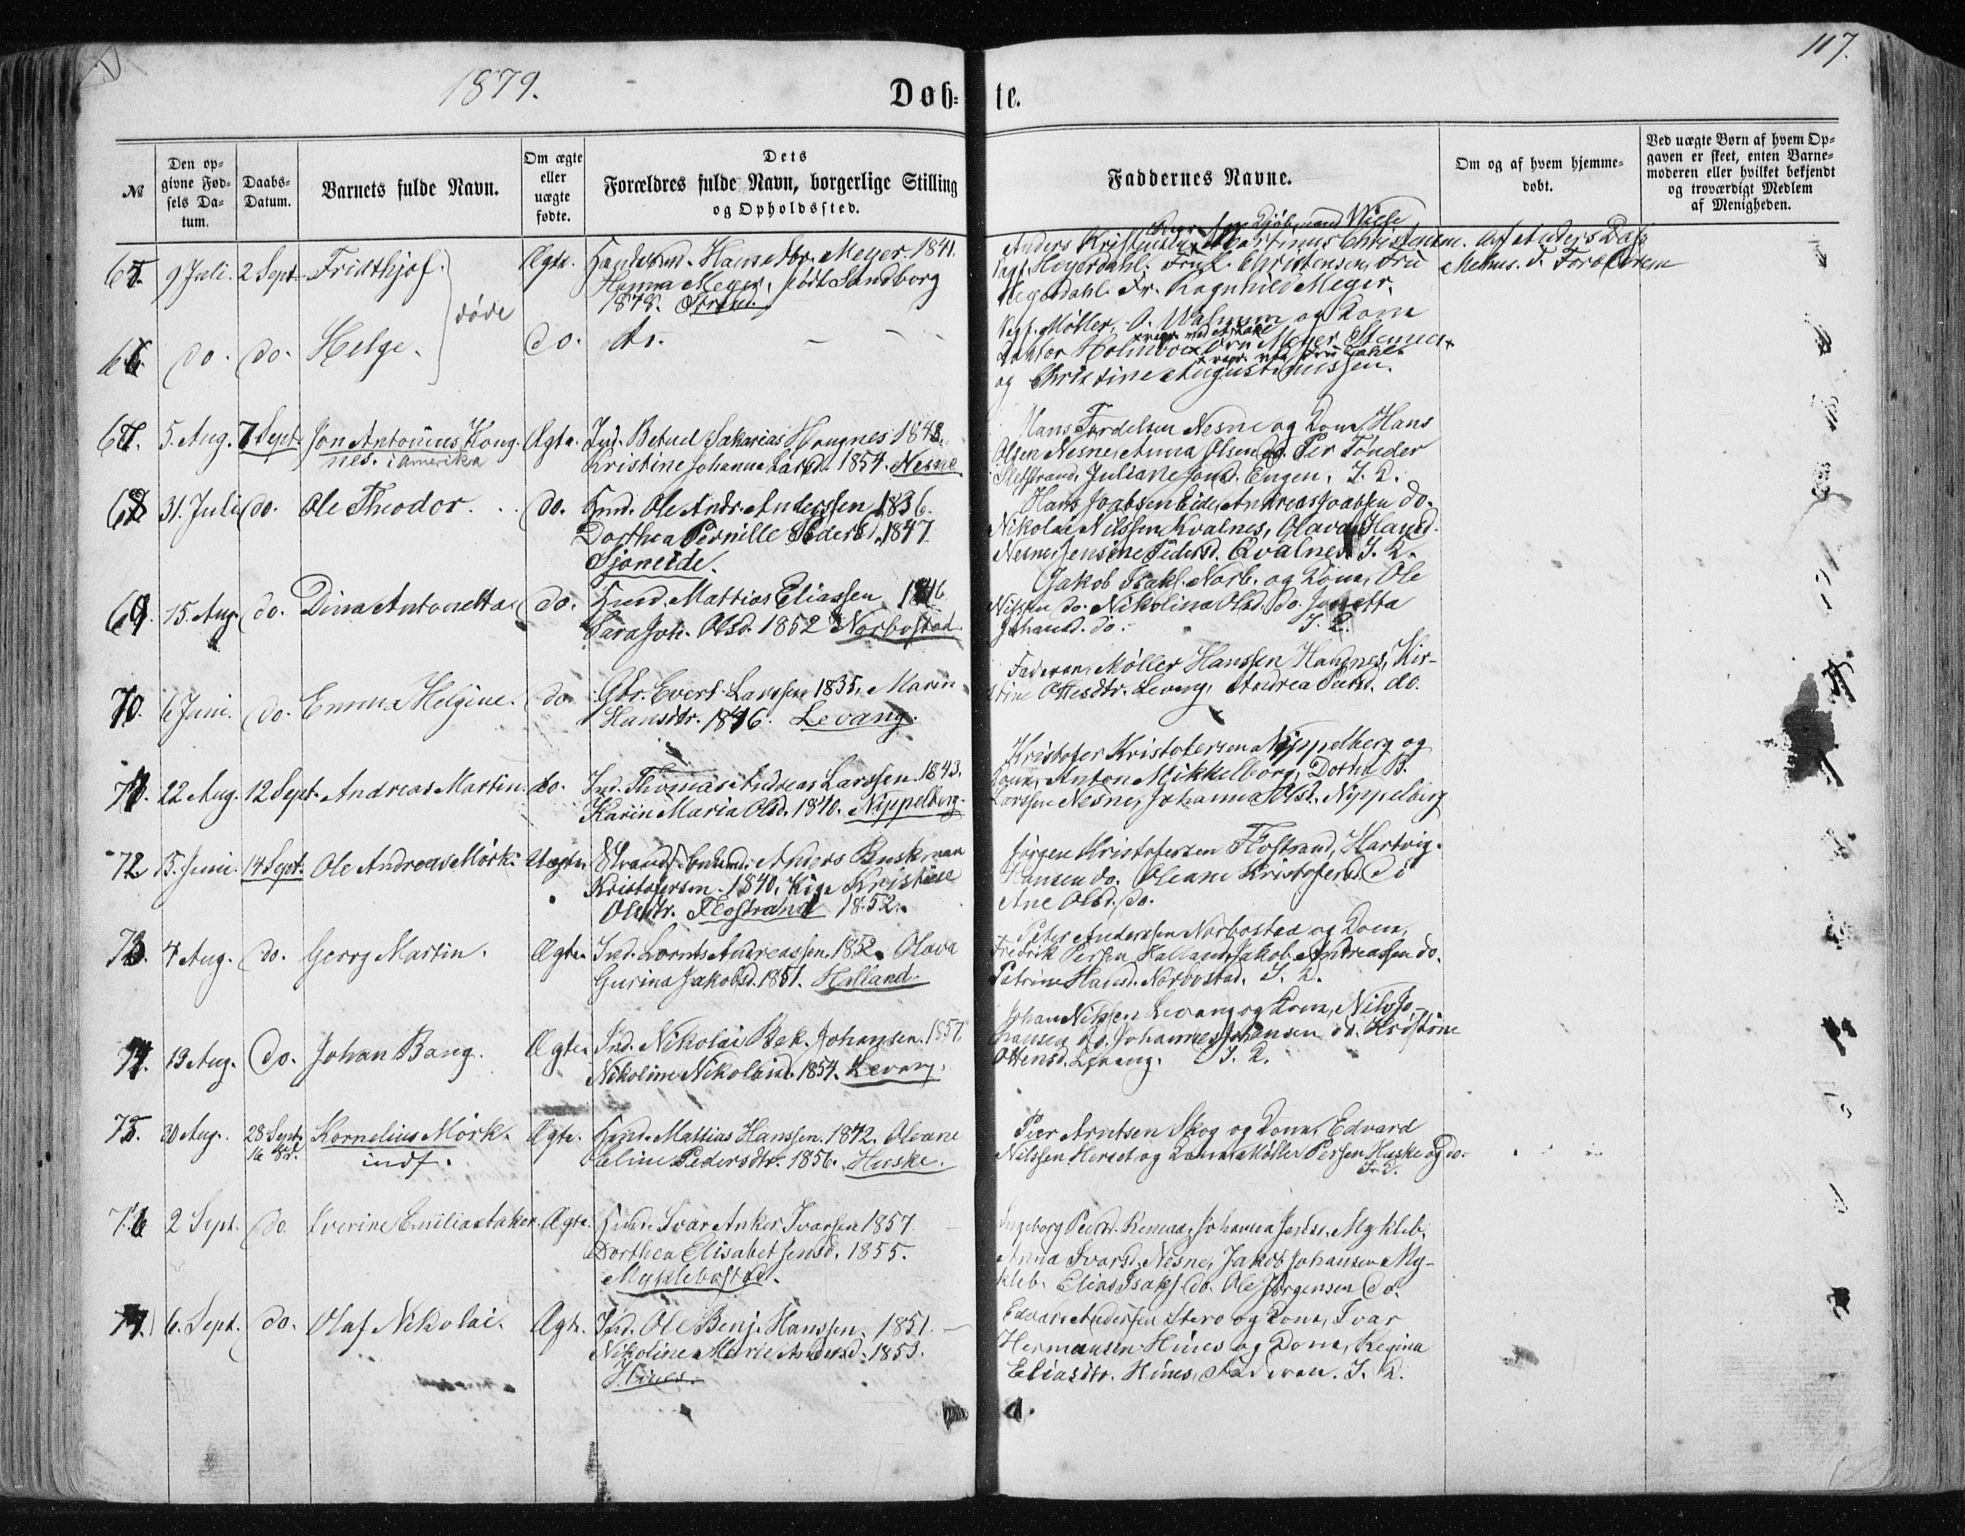 117.
1879.
Døb-te.
№
Den opgivne Fødsels Datum.
Daabs-Datum.
Barnets fulde Navn.
Om ægte eller uægte fødte.
Dets Forældres fulde Navn, borgerlige Stilling og Opholdssted.
Faddernes Navne.
Om og af hvem hjemmedøbt.
Ved uægte Børn af hvem Opgaven er skeet, enten Barnemoderen eller hvilket bekjendt og troværdigt Medlem af Menigheden.
65. 9 Juli. 2 Sept. Fridthjof. Ægte. Handelsm. Hans Meyer. 1841.
Hanna Meyer, født Sundborg
døde
66. do. do. Helge. do. do.
Anders Kristensen Martinus Christensen.
Heyerdahl. Fru Christensen, Fru
Heyerdahl. Fr. Ragnhild Meyer.
Møller, O. Walnum og Kone
Holmboe Fru Meyer Stennes
og Christine Augustinussen.
67. 5. Aug. 7 Sept. Jon Antonius Hougnes. i Amerika Ægte. Ind. Betuel Sakarias Hougnes 1848.
Kristine Johanna Larsd. 1854. Nesne
Hans Tordelsen Nesne og Kone, Hans
Olsen Nesne, Anna Olsen do. Per Tønder
Sletstrand, Juliane Jond. Engen. I. K.
68 31. Juli do. Ole Theodor. do. Hmd. Ole Andr. Anderssen 1836.
Dorthea Pernille Pedersd. 1847.
Sjoneide.
Hans Joabsen Eide, Andreas Joabsen do.
Nikolai Nilssen Kvalnes, Olava Hansd.
Nesne, Jensine Pedersd. Qvalnes. I. K.
69. 15. Aug. do. Dina Antonetta do. Hmd. Mattias Eliassen 1846.
Sara Joh. Olsd. 1852 Norbostad.
Jakob Isaks. Norb. og Kone, Ole
Nilssen do. Nikolina Olsd. do. Jonetta
Johansd. do. I. K.
70. 6 Juni. do. Emma Helgine. do. Gbr. Evert Larssen 1835, Maren
Hansdtr. 1846. Levang.
Faderen, Møller Hanssen Haugnes, Kirstine
Ottesdtr. Levang, Andrea Pedsd. do.
71. 22 Aug. 12 Sept. Andreas Martin. do. Ind. Thomas Andreas Larssen. 1843.
Karen Maria Olsd. 1840. Nyppelberg.
Kristofer Kristofersen Nyppelberg og
Kone, Anton Mikkelborg, Dorthea B.
Larssen Nesne, Johanna Olsd. Nyppelberg
72. 15. Juni. 14 Sept. Ole Andreas Mørk. Uægte. Anders Buskman
Kristofersen. 1840, Pige Kristine
Olesdtr. Flostrand 1852.
Jørgen Kristofersen Flostrand, Hartvig
Hansen do. Oleane Kristofersd. do
Ane Olsd. do.
73. 4 Aug. do. Georg Martin. Ægte. Ind. Lornts Andreassen. 1852. Olava
Gurina Jakobsd. 1851. Halland.
Peter Anderssen Norbostad og Kone,
Fredrik Persen Halland, Jakob Andreassen do.
Petrine Hansd. Norbostad. I. K.
74. 19 Aug. do. Johan Bang. Ægte. Ind. Nikolai Bek. Johansen. 1857.
Nikoline Nikolaisd. 1854. Levang.
Johan Nilssen Levang og Kone, Nils Johansen
do. Johannes Johansen do. Kristine
Ottensd. Levang. I. K.
75. 30 Aug. 28 Sept. Kornelius Mørk. Ægte. Hmd. Mattias Hanssen. 1842. Oleane
indf. Eline Pedersdtr. 1856. Huske.
Peer Arntsen Skog og Kone, Edvard
Nilssen Herset og Kone Møller Persen Huske og do.
I. K.
76 2 Sept. do. Iverine Emilia Ægte. Hmd. Ivar Anker Ivarsen 1857.
Dorthea Elisabet Jensd. 1855.
Myklebostad.
Ingeborg Pedsd. Remaa, Johanna Jensd. Mykleb.
Anna Ivarsd. Nesne, Jakob Johansen Mykleb.
Elias Isaks. do. Ole Jørgensen do.
77. 6. Sept. do. Olaf Nikolai. Ægte. Ind. Ole Benj. Hanssen. 1851.
Nikoline Marie Andersd. 1853.
Hines.
Edvard Anderssen Stero og Kone, Ivar
Hermansen Hines og Kone, Regina
Eliasdtr. Hines, Faderen. I. K.